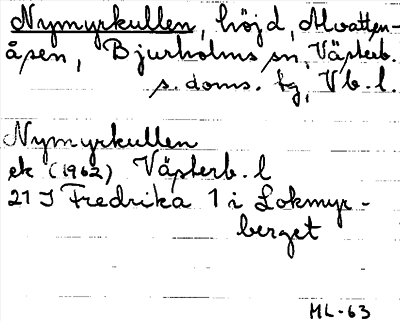 Nymyrkullen, höjd, Mvatten-
åsen, Bjurholms sn, Västerb.
s. doms. tg, Vb. l.
Nymyrkullen
ek. (1962) Västerb. l
21 J Fredrika 1 i Lokmyr-
berget
ML-63